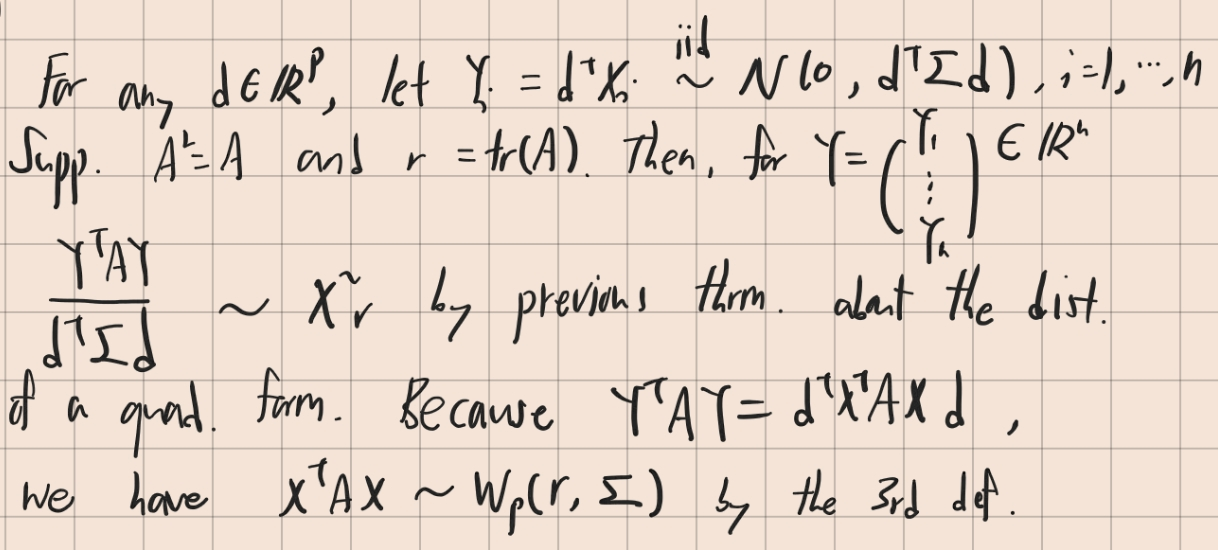 For any d ∈ ℝᵖ, let Yᵢ = dᵀXᵢ iid ~ N(0, dᵀΣd), i=1, ⋯, n
Supp. A²=A and r = tr(A). Then, for Y = (Y₁ ⋮ Yₙ) ∈ ℝⁿ
YᵀAY / dᵀΣd ~ χ²ᵣ by previous thrm. about the dist.
of a quad. form. Because YᵀAY = dᵀXᵀAXd ,
we have XᵀAX ~ Wₚ(r, Σ) by the 3rd def.